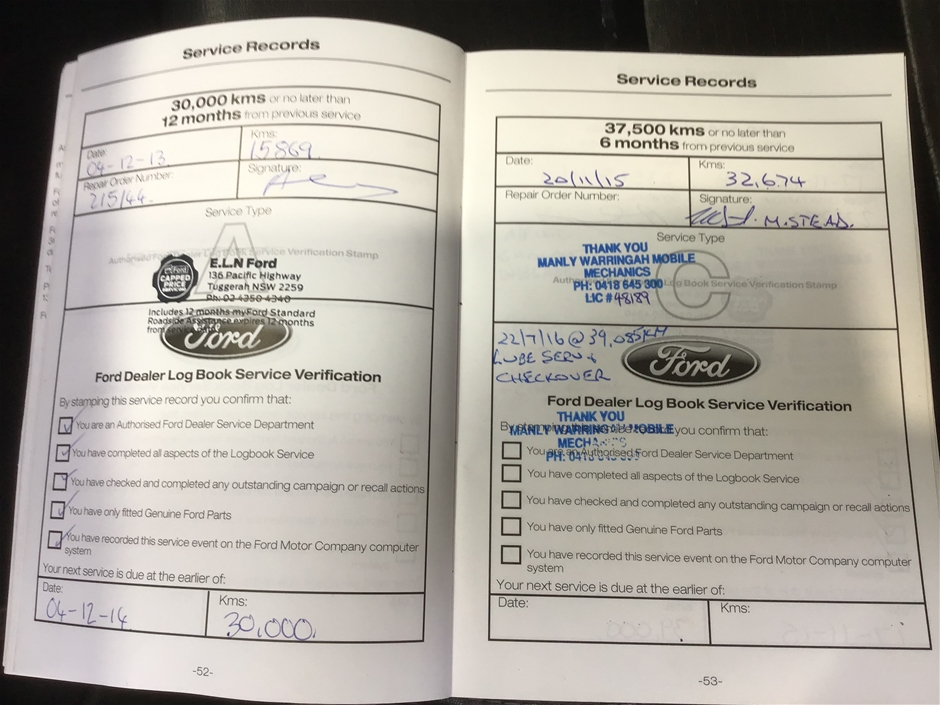 Service Records
30,000 kms or no later than
12 months from previous service
Date:
04-12-13
Kms:
15869
Repair Order Number:
215144
Signature:
Service Type
A
E.L.N Ford
136 Pacific Highway
Tuggerah NSW 2259
Ph: 02 4350 4340
Ford
CAPPED
PRICE
Includes 12 months myFord Standard
Roadside Assistance expires 12 months
from service
Ford
Ford Dealer Log Book Service Verification
By stamping this service record you confirm that:
You are an Authorised Ford Dealer Service Department
You have completed all aspects of the Logbook Service
You have checked and completed any outstanding campaign or recall actions
You have only fitted Genuine Ford Parts
You have recorded this service event on the Ford Motor Company computer
system
Your next service is due at the earlier of:
Date:
04-12-14
Kms:
30,000
-52-
Service Records
37,500 kms or no later than
6 months from previous service
Date:
20/11/15
Kms:
32,674
Repair Order Number:
Signature:
M.STEAD.
Service Type
C
THANK YOU
MANLY WARRINGAH MOBILE
MECHANICS
PH: 0418 645 300
LIC # 48189
Log Book Service Verification Stamp
22/7/16 @ 39,085KM
LUBE SERV +
CHECKOVER
Ford
Ford Dealer Log Book Service Verification
THANK YOU
MANLY WARRINGAH MOBILE
MECHANICS
PH: 0418
you confirm that:
You are an Authorised Ford Dealer Service Department
You have completed all aspects of the Logbook Service
You have checked and completed any outstanding campaign or recall actions
You have only fitted Genuine Ford Parts
You have recorded this service event on the Ford Motor Company computer
system
Your next service is due at the earlier of:
Date:
Kms:
-53-